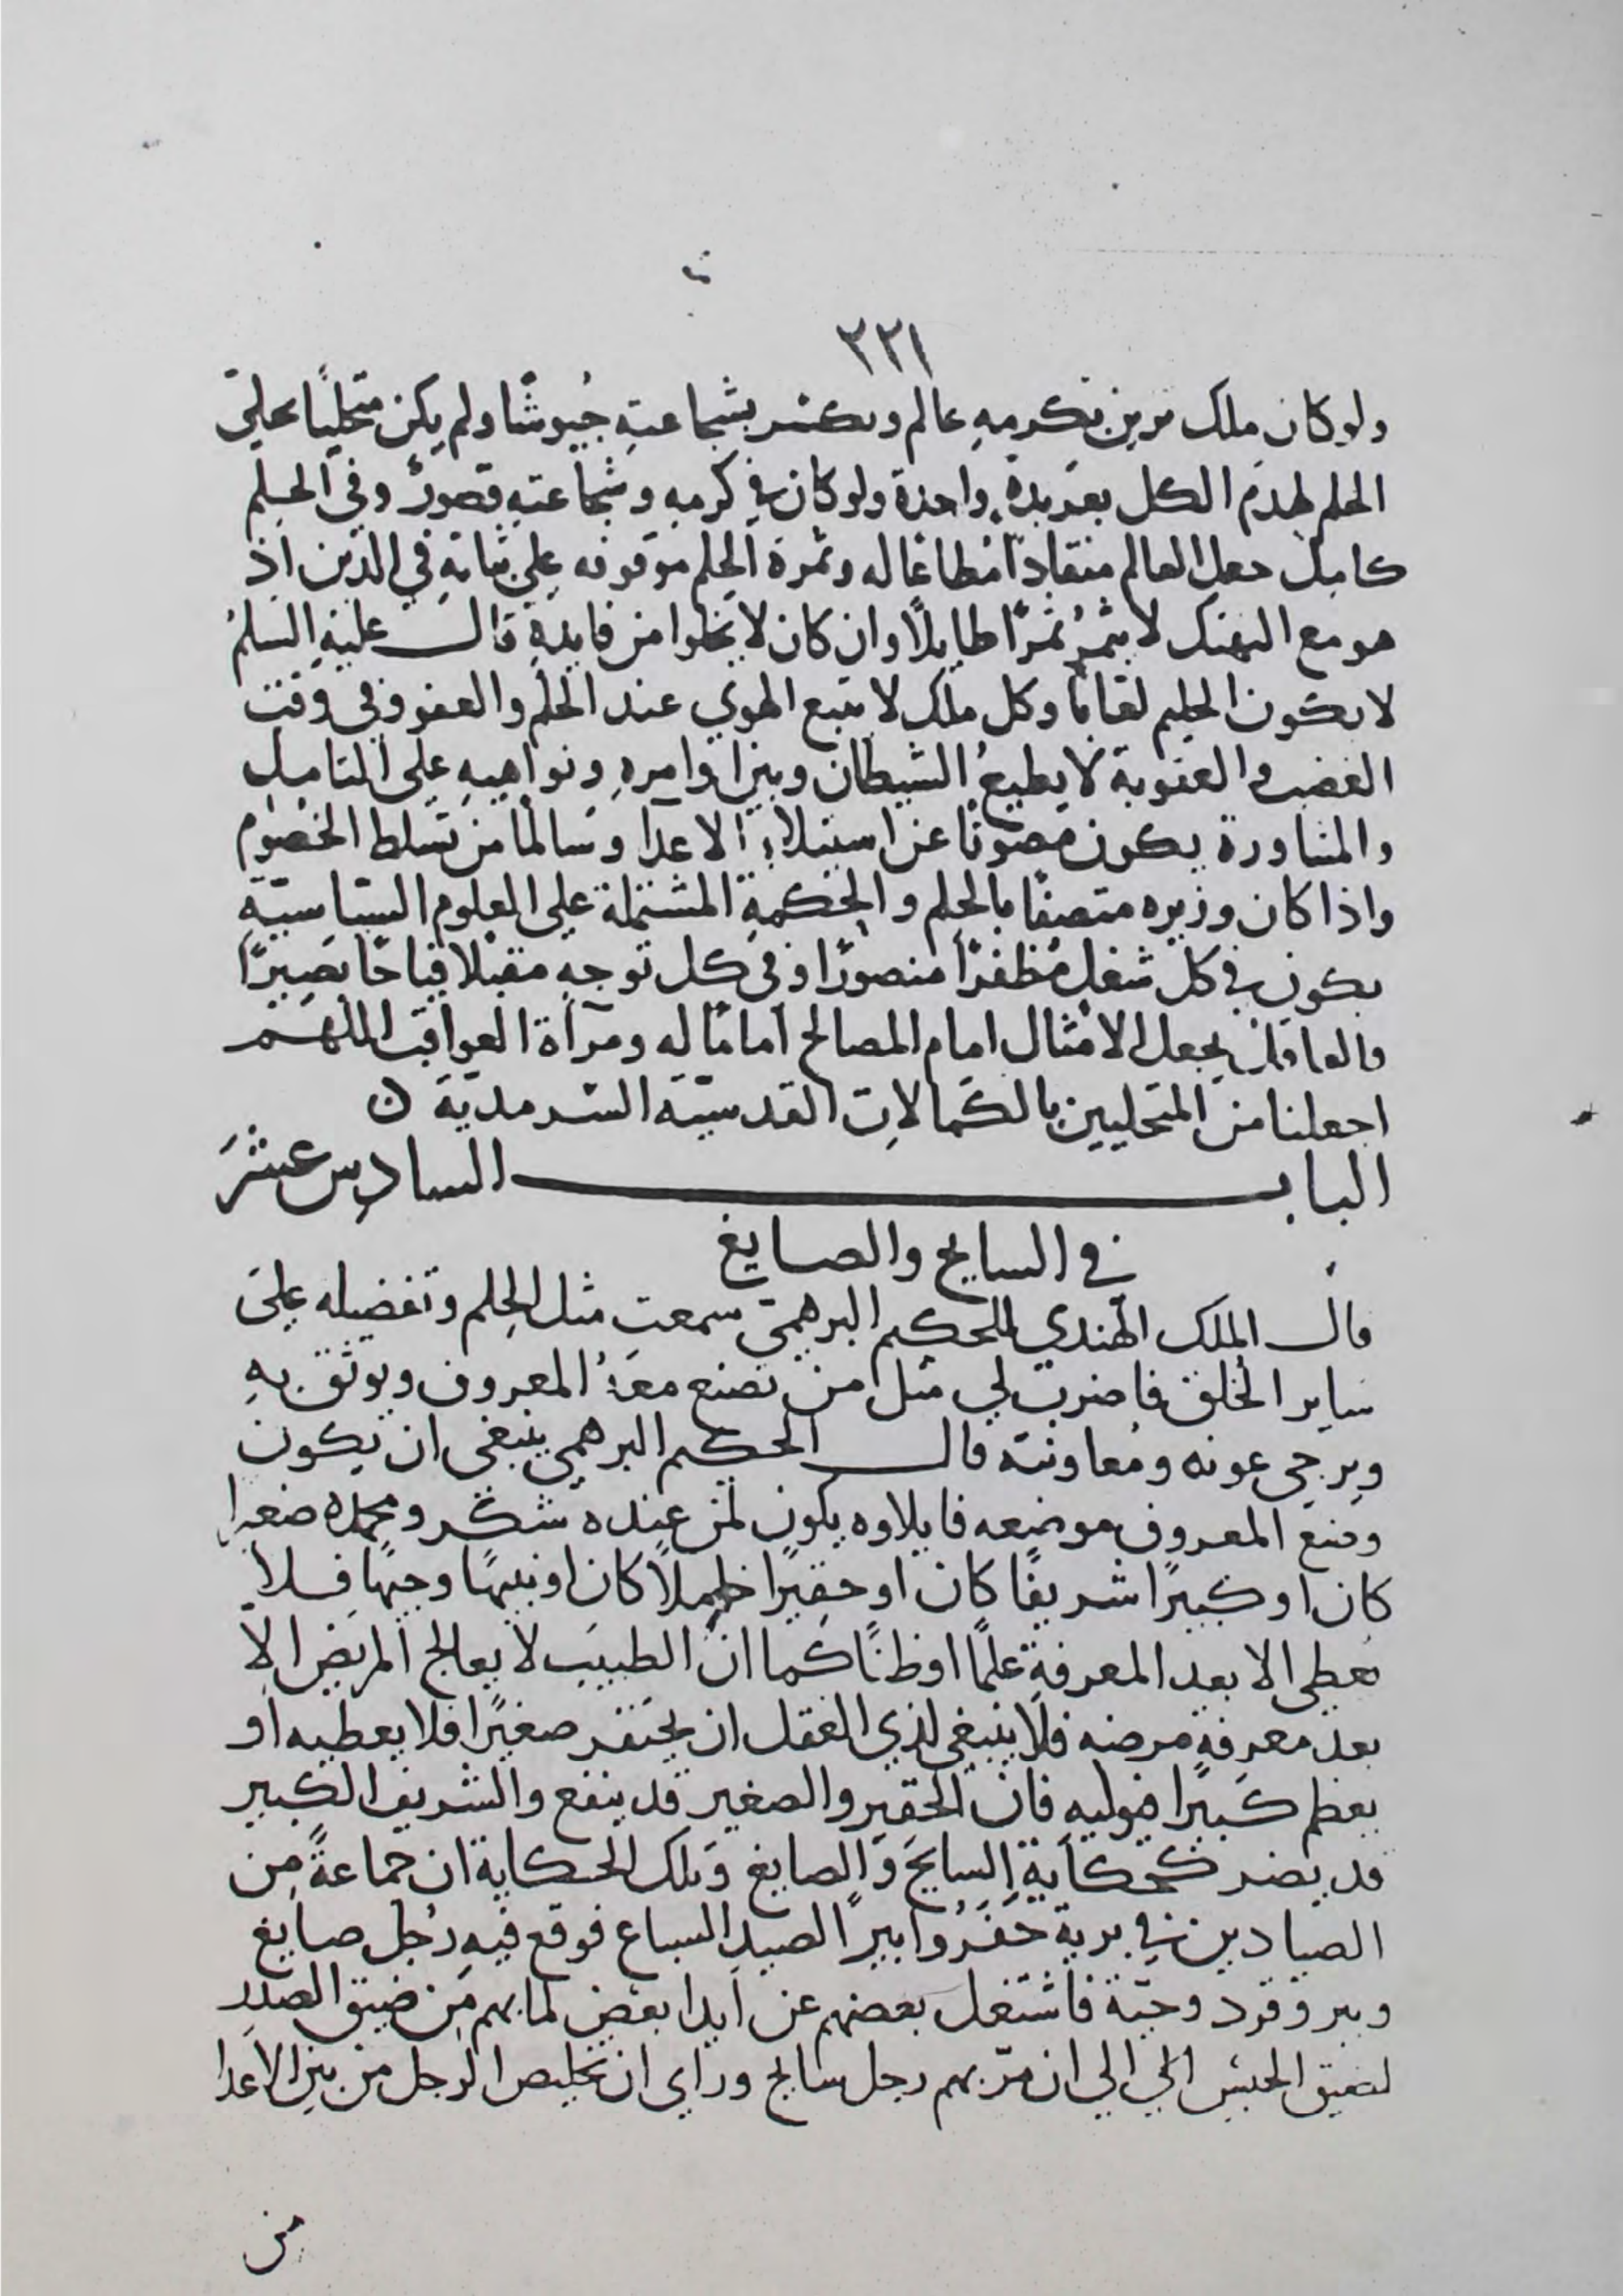 ٢٢١
ولو كان ملك يزين بكرمهِ عالم ويكسر بشجاعتهِ جُيوشًا ولم يكن متحليًا بحليّ
الحلم لهدم الكل بعربدة واحدة ولو كان في كرمهِ وشجاعتهِ قصورٌ وفي الحلم
كامل جعل العالم منقادًا مطاعًا له وثمرة الحلم موقوفه على ثباته في الدين اذ
هو مع التهتك لا يثمرُ ثمرًا طايلًا وان كان لا يخلوا من فايدهٍ قال عليهِ السلمُ
لا يكون الحليم لعانا وكل ملك لا يتبع الهوي عند الحلم والعفو وفي وقت
الغضب والعقوبة لا يطيعُ الشيطان ويبني اوامرهِ ونواهيهِ على التامل
والمشاورة يكون مصونًا عن استيلاء الاعدا وسالمًا من تسلط الخصوم
واذا كان وزيره متصفًا بالحلم والحكمةِ المشتملة على العلوم السياسيّةِ
يكون في كل شغل مظفرًا منصورًا وفي كل توجهٍ مقبلا فياحًا بصيرًا
فالعاقل يجعل الامثال امام المصالح امامًا له ومرآة العواقب اللهم
اجعلنا من المتحليين بالكمالات القدسيّة السرمديّة ن
الباب السادس عشرَ
في السايح والصايغ
قال الملك الهندي للحكيم البرهمي سمعت مثل الحلم وتفضيله على
ساير الخلق فاضرب لي مثل من تصنع معهُ المعروف ويوثق بهِ
ويرجي عونه ومُعاونته قال الحكيم البرهمي ينبغي ان يكون
وضع المعروف موضعه فايلاوه يكون لمن عنده شكر ومحمده صغيرا
كان او كبيرًا شريفًا كان او حقيرًا خاملًا كان او نبيهًا وجيهًا فلا
يُعطى الا بعد المعرفةِ علمًا او ظنًا كما ان الطبيب لا يعالج المريض الّا
بعد معرفةِ مرضه فلا ينبغي لذي العقل ان يحتقر صغيرًا فلا يعطيه او
يعظم كبيرًا فيوليه فان الحقير والصغير قد ينفع والشريف الكبير
قد يضر كحكاية السايح والصايغ وتلك الحكاية ان جماعةً من
الصيادين في برية حَفَرُوا بيرًا لصيد السباع فوقع فيهِ رُجل صايغ
وببر وقرد وحيّة فاشتغل بعضهم عن ايدا بعض لما بهم من ضيق الصدر
لضيق الحبس الي الي ان مرّ بهم رجل سايح وراي ان تخليص الرجل من بين الاعدا
من